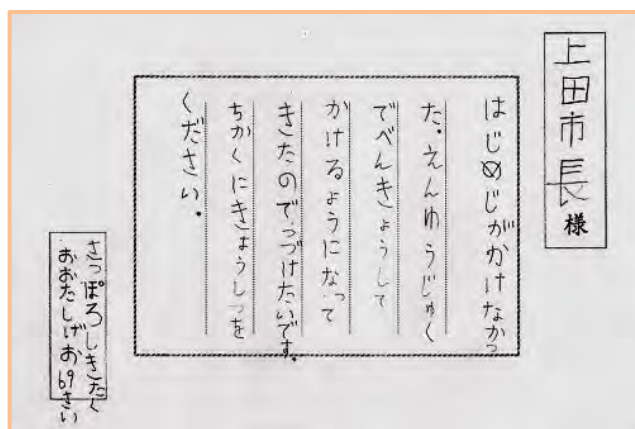 上田市長様
はじめじがかけなかっ
た。えんゆうじゅく
でべんきょうして
かけるようになって
きたのでつづけたいです。
ちかくにきょうしつを
ください。
さっぽろしきたく
おおたしげお69さい